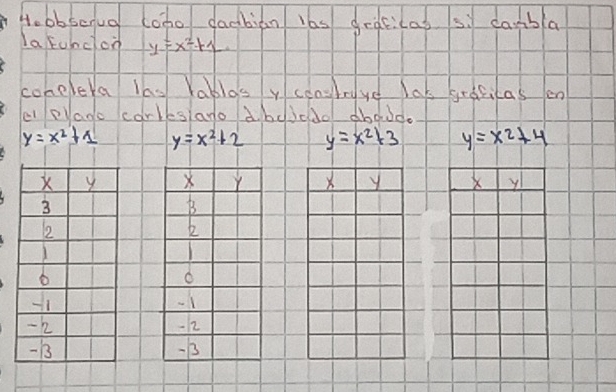 4.observa como cambian las gráficas si cambia
la función y=x²+1
completa las tablas y construye las gráficas en
el plano cartesiano dibujado abajo.
y=x²+1 y=x²+2 y=x²+3 y=x²+4
x y x y x y x y
3 3
2 2
1 1
0 0
-1 -1
-2 -2
-3 -3